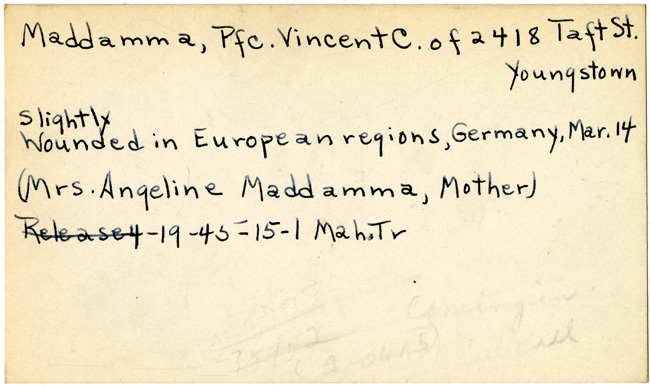 Maddamma, Pfc. Vincent C. of 2418 Taft St.
Youngstown
slightly
Wounded in European regions, Germany, Mar. 14
(Mrs. Angeline Maddamma, Mother)
Release 4-19-45-15-1 Mah. Tr
Coming in